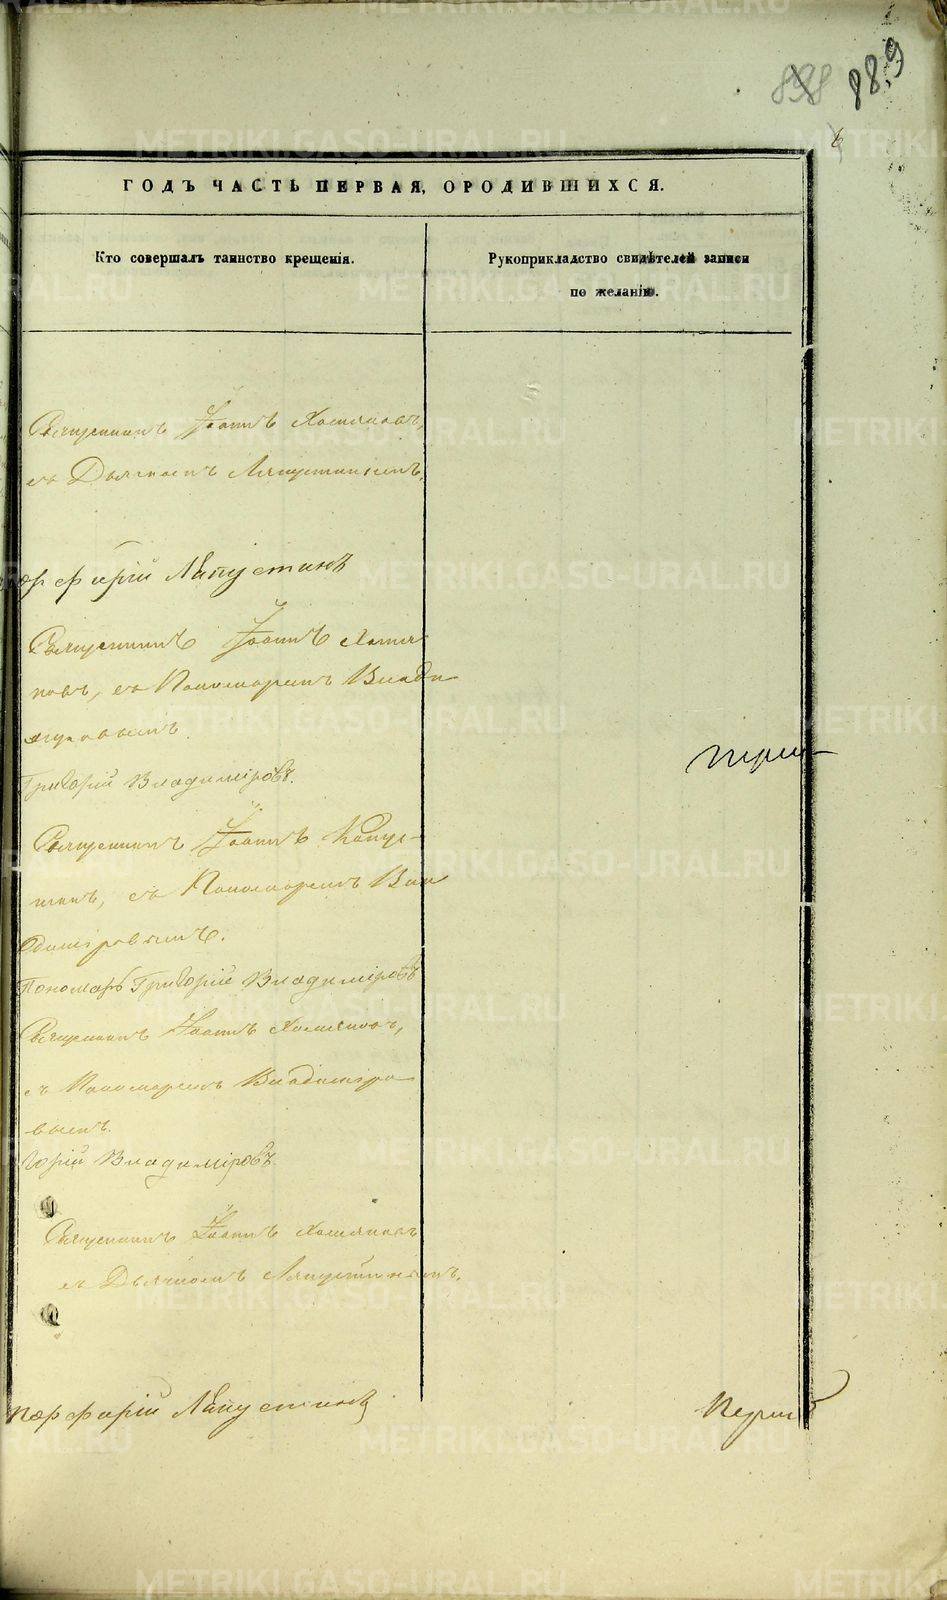 898 889
6
ГОДЪ ЧАСТЬ ПЕРВАЯ, О РОДИВШИХСЯ.
Кто совершалъ таинство крещенія.
Рукоприкладство свидѣтелей записи
по желанію.
Священникъ Іоаннъ Хомяковъ,
съ Дьячкомъ Ляпустинымъ
Порфирій Ляпустинъ
Священникъ Іоаннъ Хомя
ковъ, съ Пономаремъ Влади
міровымъ
Григорій Владиміровъ.
Священникъ Іоаннъ
съ Пономаремъ Вла
диміровымъ.
Пономарь Григорій Владиміровъ
Священникъ Іоаннъ Хомяковъ,
съ Пономаремъ Владиміро
вымъ.
Владиміровъ
Священникъ Іоаннъ Хомяковъ
съ Дьячкомъ Ляпустинымъ.
Порфирій Ляпустинъ
METRIKI.GASO-URAL.RU